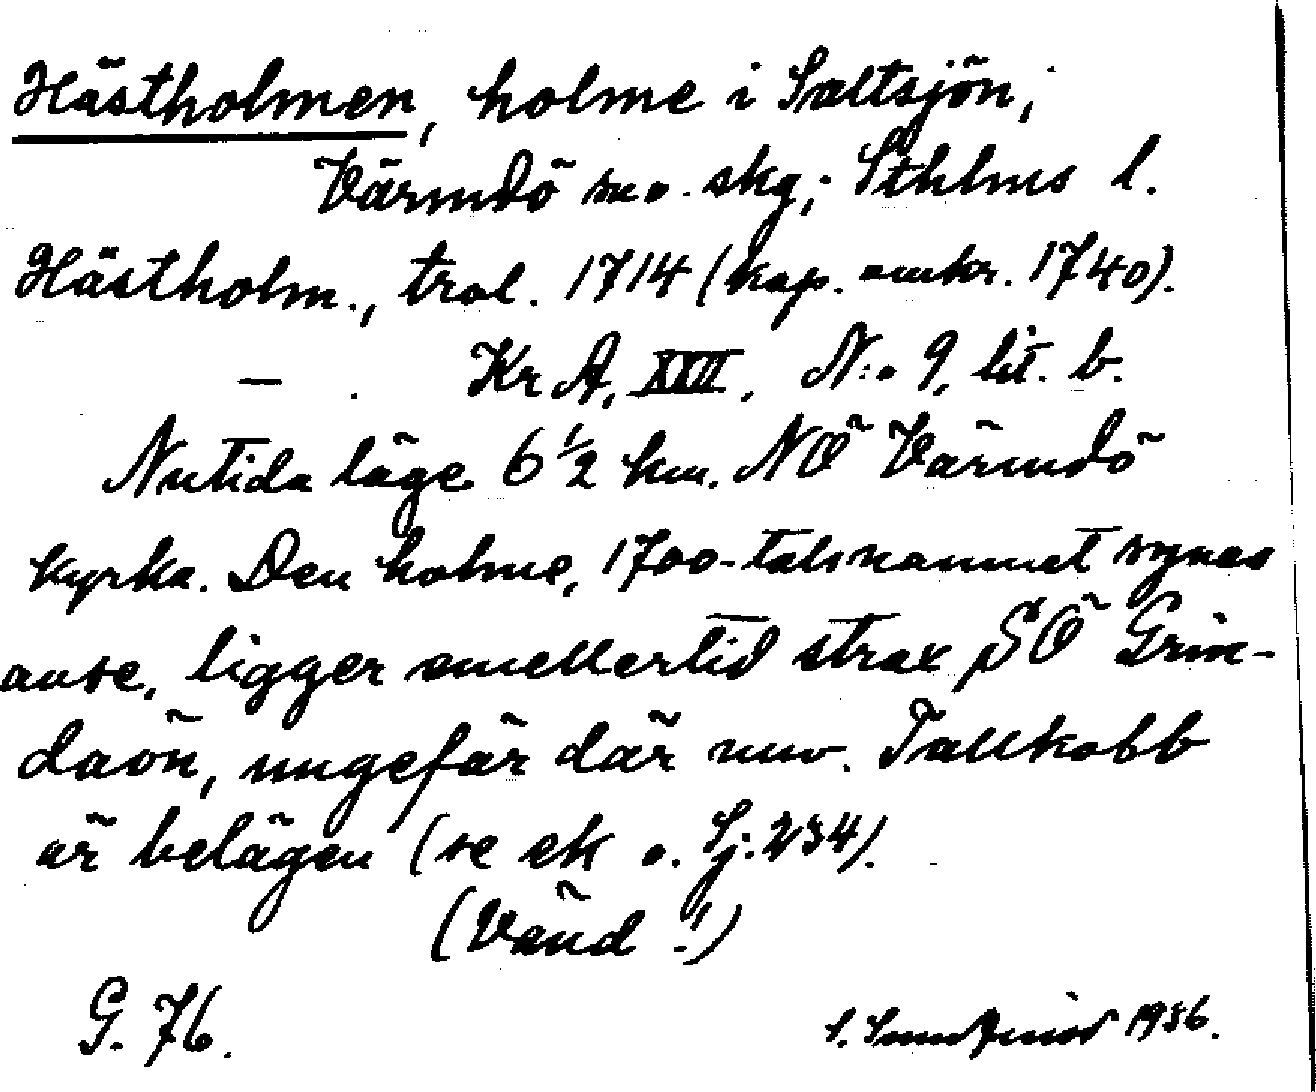 Hästholmen, holme i Saltsjön,
Värmdö sn o. skg; Sthlms l.
Hästholm., trol. 1714 (kop. omkr. 1740).
— . Kr A, XVII, N:o 9, lit. b.
Nutida läge 6 1/2 km. NÖ Värmdö
kyrka. Den holme, 1700-talsnamnet synes
avse, ligger emellertid strax SÖ Grin-
daön, ungefär där nuv. Tallkobb
är belägen (se ek o. Sj. 234).
(Vänd!)
G. 76. 1936.